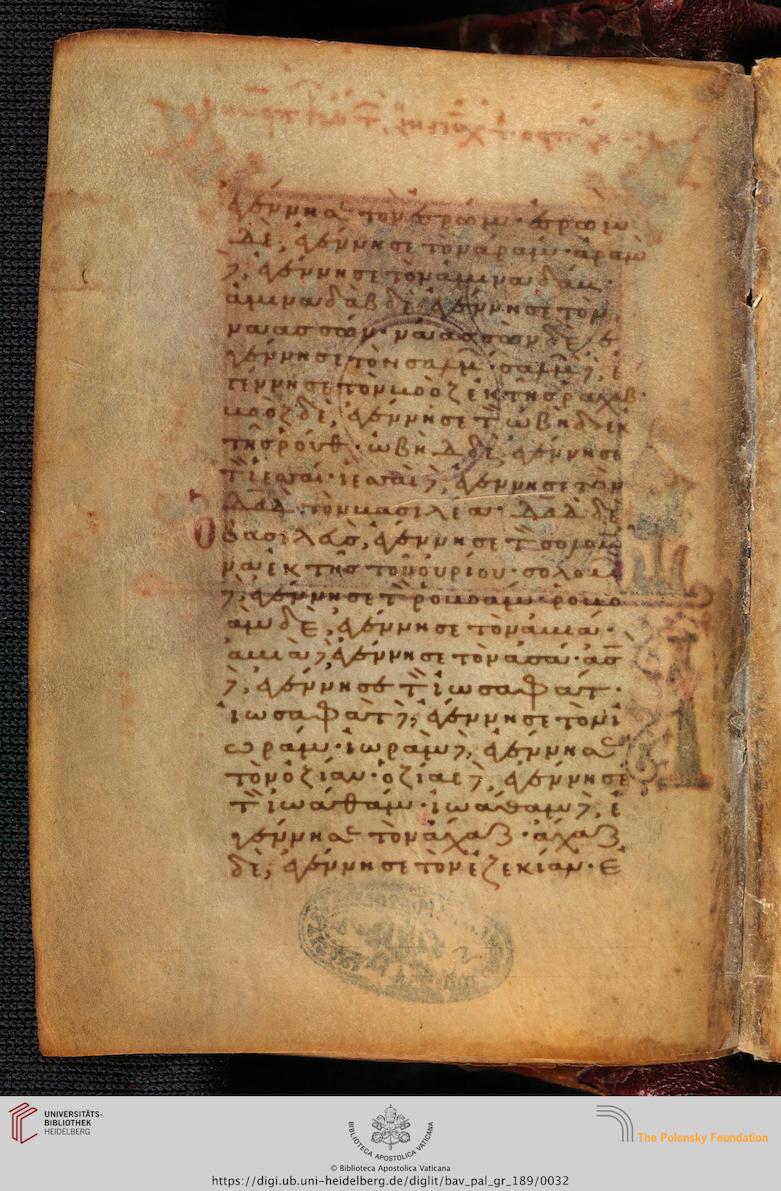 ἐγέννησε τὸν ἐσρώμ· ἐσρώμ
δὲ, ἐγέννησε τὸν ἀράμ· ἀράμ
δὲ, ἐγέννησε τὸν ἀμιναδάμ·
ἀμιναδὰβ δὲ, ἐγέννησε τὸν
ναασσών· ναασσὼν δὲ, ἐ
γέννησε τὸν σαλμ· σαλμ δὲ, ἐ
γέννησε τὸν βοὸζ ἐκ τῆς ραχάβ·
βοὸζ δὲ, ἐγέννησε τ ὠβὴδ ἐκ
τῆς ρούθ· ὠβὴδ δὲ, ἐγέννησε
τ ἰεσσαί· ἰεσσαὶ δὲ, ἐγέννησε τὸν
δαδ τὸν βασιλέα· δαδ δὲ
ὁ βασιλεὺς, ἐγέννησε τ σολομ
να ἐκ τῆς τοῦ οὐρίου· σολομ
δὲ, ἐγέννησε τ ροβοάμ· ροβο
ὰμ δὲ, ἐγέννησε τὸν ἀβιά·
ἀβιὰ δὲ, ἐγέννησε τὸν ἀσά· ἀσ
δὲ, ἐγέννησε τ ἰωσαφάτ·
ἰωσαφὰτ δὲ, ἐγέννησε τὸν ἰ
ωράμ· ἰωρὰμ δὲ, ἐγέννησε
τὸν ὀζίαν· ὀζίας δὲ, ἐγέννησε
τ ἰωάθαμ· ἰωάθαμ δὲ, ἐ
γέννησε τὸν ἄχαζ· ἄχαζ
δὲ, ἐγέννησε τὸν ἐζεκίαν· Ε
UNIVERSITÄTS-
BIBLIOTHEK
HEIDELBERG
BIBLIOTECA APOSTOLICA VATICANA
The Polonsky Foundation
© Biblioteca Apostolica Vaticana
https://digi.ub.uni-heidelberg.de/diglit/bav_pal_gr_189/0032